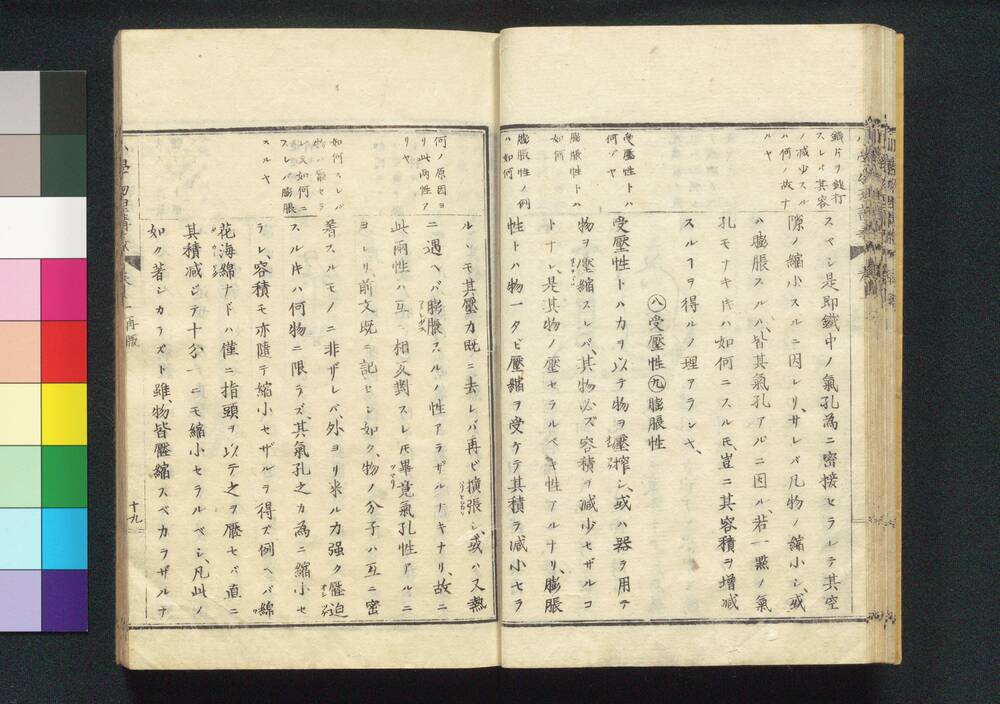 鐵片ヲ鎚打
スレバ其容
ノ減少スル
ハ何ノ故ナ
ルヤ
スベシ是即鐵中ノ氣孔為ニ密接セラレテ其空
隙ノ縮小スルニ因レリ、サレバ凡物ノ縮小シ、或
ハ膨脹スルハ、皆其氣孔アルニ因ル、若一點ノ氣
孔モナキ片ハ如何ニスルモ豈ニ其容積ヲ增減
スルヿヲ得ルノ理アランヤ、
八受壓性九膨脹性
受壓性トハ
何ゾヤ
膨脹性トハ
如何
膨脹性ノ例
ハ如何
受壓性トハカヲ以テ物ヲ壓搾シ、或ハ器ヲ用テ
物ヲ壓縮スレバ、其物必ズ容積ヲ減少セザルコ
トナシ、是其物ノ壓セラルベキ性アルナリ、膨脹
性トハ物一タビ壓縮ヲ受ケテ其積ヲ減小セラ
何ノ原因ヨ
リ此両性ア
リヤ
如何スレバ
レ又如何ニ
スレバ膨脹
スルヤ
ルヽモ其壓力既ニ去レバ再ビ擴張シ、或ハ又熱
ニ遇ヘバ膨脹スルノ性アラザルナキナリ、故ニ
此兩性ハ互ニ相反對スレ𪜈畢竟氣孔性アルニ
ヨレリ、前文既ニ記セシ如ク、物ノ分子ハ互ニ密
著スルモノニ非ザレバ、外ヨリ来ル力强ク壓迫
スル片ハ何物ニ限ラズ、其氣孔之カ為ニ縮小セ
ラレ、容積モ亦隨テ縮小セザルヲ得ズ例ヘバ綿
花海綿ナドハ僅ニ指頭ヲ以テ之ヲ壓セバ直ニ
其積減ジテ十分一ニモ縮小セラルベシ、凡此ノ
如ク著シカラズト雖、物皆壓縮スベカラザルナ
再版
十九